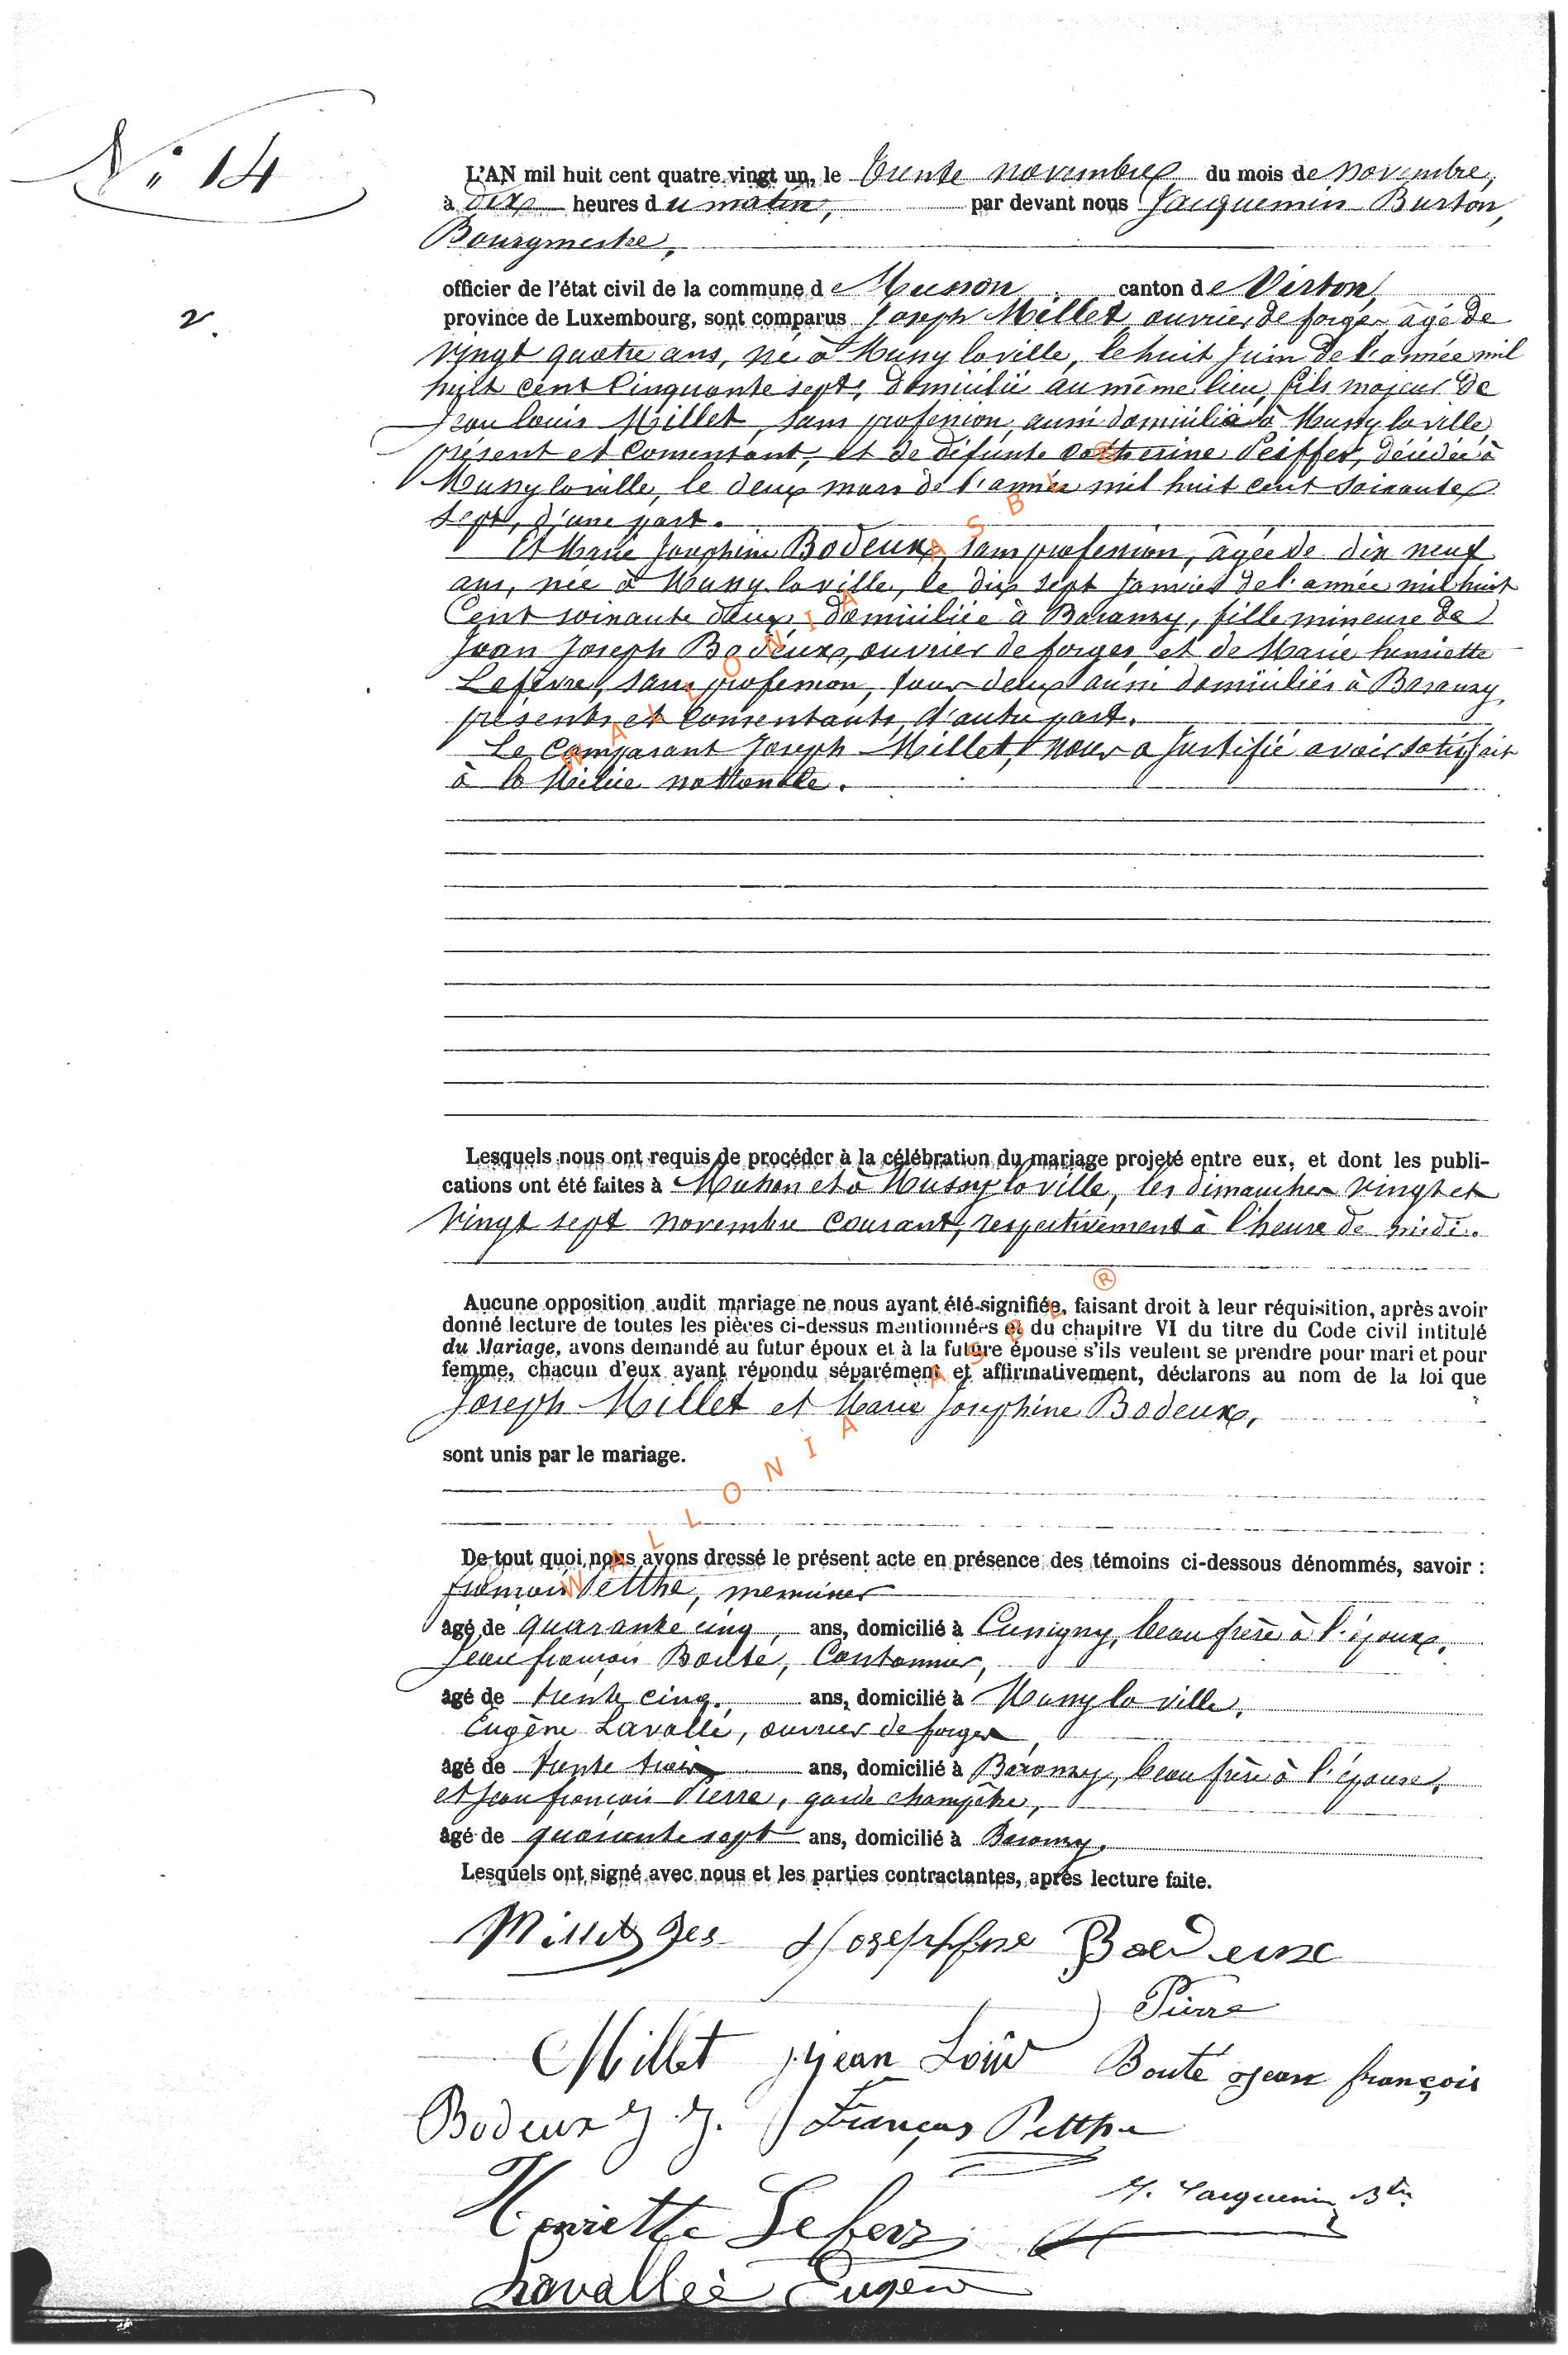 N° 14
L'AN mil huit cent quatre vingt un, le trente novembre du mois de novembre,
à dix heures du matin, par devant nous Jacquemin Burton,
Bourgmestre,
officier de l'état civil de la commune de Musson canton de Virton,
2.
province de Luxembourg, sont comparus Joseph Millet, ouvrier de forges, âgé de
vingt quatre ans, né à Mussy la ville, le huit Juin de l'année mil
huit cent cinquante sept, domicilié au même lieu, fils majeur de
Jean louis Millet, sans profession, aussi domicilié à Mussy la ville
présent et consentant, et de défunte catherine Peiffer, décédée à
Mussy la ville, le deux mars de l'année mil huit cent soixante
sept, d'une part.
Et Marie Josephine Bodeux, sans profession, âgée de dix neuf
ans, née à Mussy la ville, le dix sept Janvier de l'année mil huit
Cent soixante deux, domiciliée à Baranzy, fille mineure de
Jean Joseph Bodeux, ouvrier de forges et de Marie henriette
Lefèvre, sans profession, tous deux aussi domiciliés à Baranzy
présents et consentants, d'autre part.
Le Comparant Joseph Millet, nous a Justifié avoir satisfait
à la Milice nationale.
Lesquels nous ont requis de procéder à la célébration du mariage projeté entre eux, et dont les publi-
cations ont été faites à Musson et à Mussy la ville, les dimanches vingt et
vingt sept novembre courant, respectivement à l'heure de midi.
Aucune opposition audit mariage ne nous ayant été signifiée, faisant droit à leur réquisition, après avoir
donné lecture de toutes les pièces ci-dessus mentionnées et du chapitre VI du titre du Code civil intitulé
du Mariage, avons demandé au futur époux et à la future épouse s'ils veulent se prendre pour mari et pour
femme, chacun d'eux ayant répondu séparément et affirmativement, déclarons au nom de la loi que
Joseph Millet et Marie Josephine Bodeux,
sont unis par le mariage.
De tout quoi, nous avons dressé le présent acte en présence des témoins ci-dessous dénommés, savoir :
françois Petthe, menuisier
âgé de quarante cinq, ans, domicilié à Cussigny, beau frère à l'époux,
Jean françois Bouté, Cantonnier,
âgé de trente cinq, ans, domicilié à Mussy la ville,
Eugène Lavallé, ouvrier de forges,
âgé de trente trois ans, domicilié à Baranzy, beau frère à l'épouse,
et Jean françois Pierre, garde champêtre,
âgé de quarante sept ans, domicilié à Baranzy.
Lesquels ont signé avec nous et les parties contractantes, après lecture faite.
Millet Jes Josephfine Bodeux
Pierre
Millet Jean Loui Bouté Jean françois
Bodeux J. J. François Petthe
Henriette Lefevr J. Jacquemin Btn
Lavallée Eugène
WALLONIA ASBL ®
WALLONIA ASBL ®